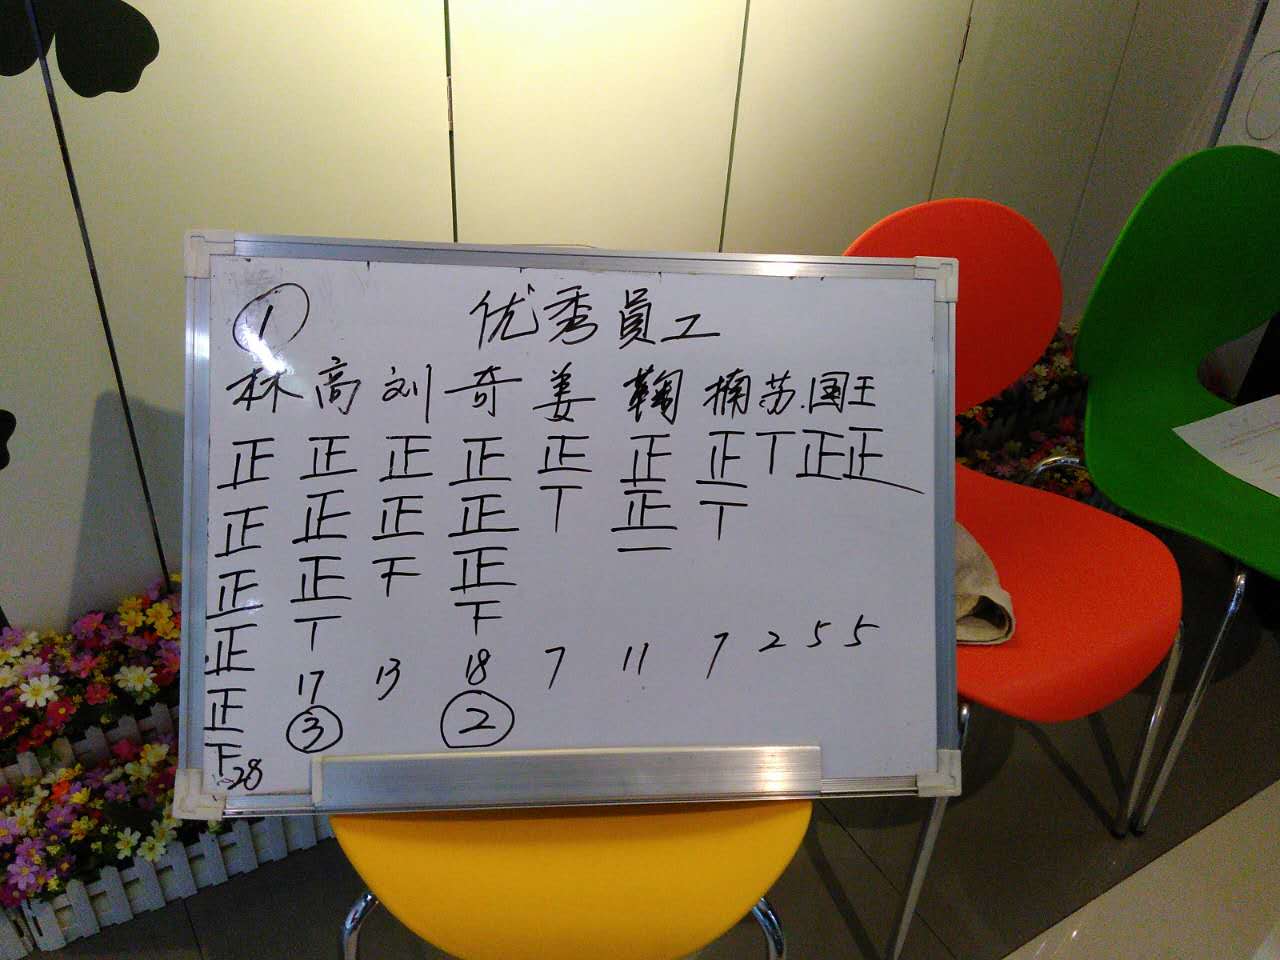 ① 优秀員工
林 高 刘 奇 姜 鞠 楠 苏.国王
正 正 正 正 正 正 正 丅 正 正
正 正 正 正 丅 正 丅
正 正 下 正 一
正 丅 下
正 17 13 18 7 11 7 2 5 5
正 ③ ②
下 28